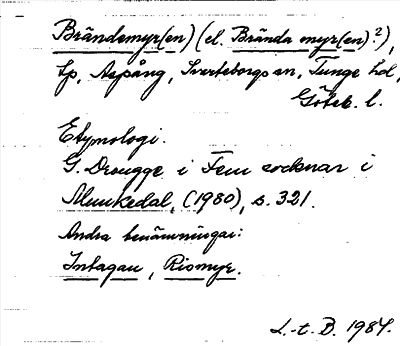 Brändemyr(en) (el. Brända myr(en)?),
tp, Aspång, Svarteborgs sn, Tunge hd,
Göteb. l.
Etymologi.
G. Drougge i Fem socknar i
Munkedal, (1980), s. 321.
Andra benämningar:
Intagan, Rismyr.
L.-t. B. 1984.